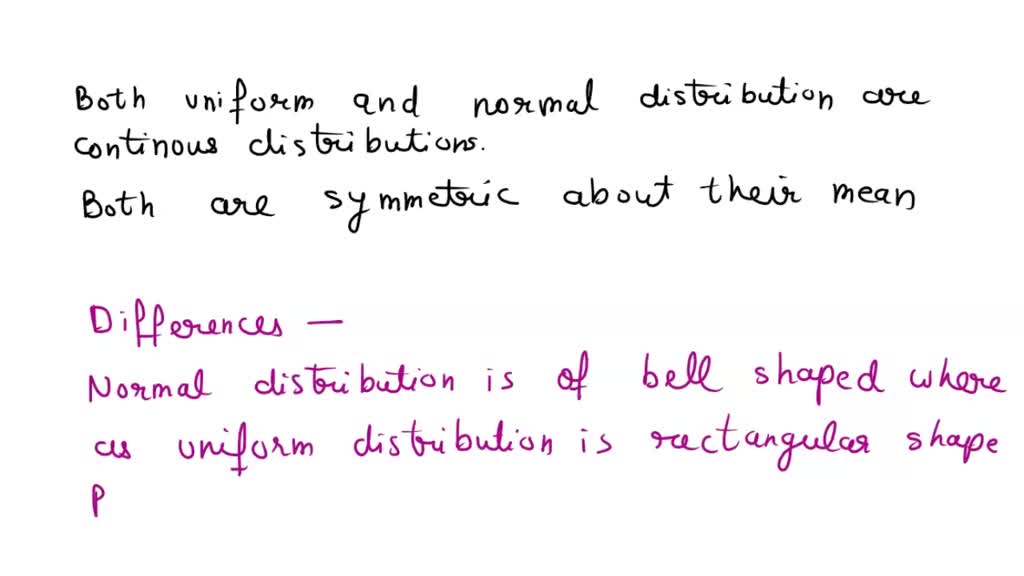 Both uniform and normal distribution are
continous distributions.
Both are symmetric about their mean
Differences —
Normal distribution is of bell shaped where
as uniform distribution is rectangular shape
P